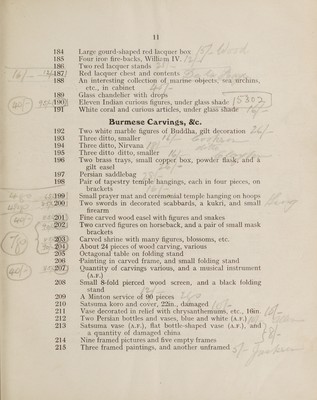 11
184 Large gourd-shaped red lacquer box
185 Four iron fire-backs, William IV.
186 Two red lacquer stands
187 Red lacquer chest and contents
188 An interesting collection of marine objects, sea urchins,
etc., in cabinet
189 Glass chandelier with drops
190 Eleven Indian curious figures, under glass shade 15302
191 White coral and curious articles, under glass shade
Burmese Carvings, &c.
192 Two white marble figures of Buddha, gilt decoration
193 Three ditto, smaller
194 Three ditto, Nirvana
195 Three ditto, smaller
196 Two brass trays, small copper box, powder flask, and a
gilt easel
197 Persian saddlebag
198 Pair of tapestry temple hangings, each in four pieces, on
brackets
199 Small prayer mat and ceremonial temple hanging on hoops
200 Two swords in decorated scabbards, a kukri, and small
firearm
201 Fine carved wood easel with figures and snakes
202 Two carved figures on horseback, and a pair of small mask
brackets
203 Carved shrine with many figures, blossoms, etc.
204 About 24 pieces of wood carving, various
205 Octagonal table on folding stand
206 Painting in carved frame, and small folding stand
207 Quantity of carvings various, and a musical instrument
(A.F.)
208 Small 8-fold pierced wood screen, and a black folding
stand
209 A Minton service of 96 pieces
210 Satsuma koro and cover, 22in., damaged
211 Vase decorated in relief with chrysanthemums, etc., 16in.
212 Two Persian bottles and vases, blue and white (A.F.)
213 Satsuma vase (A.F.), flat bottle-shaped vase (A.F.), and
a quantity of damaged china
214 Nine framed pictures and five empty frames
215 Three framed paintings, and another unframed